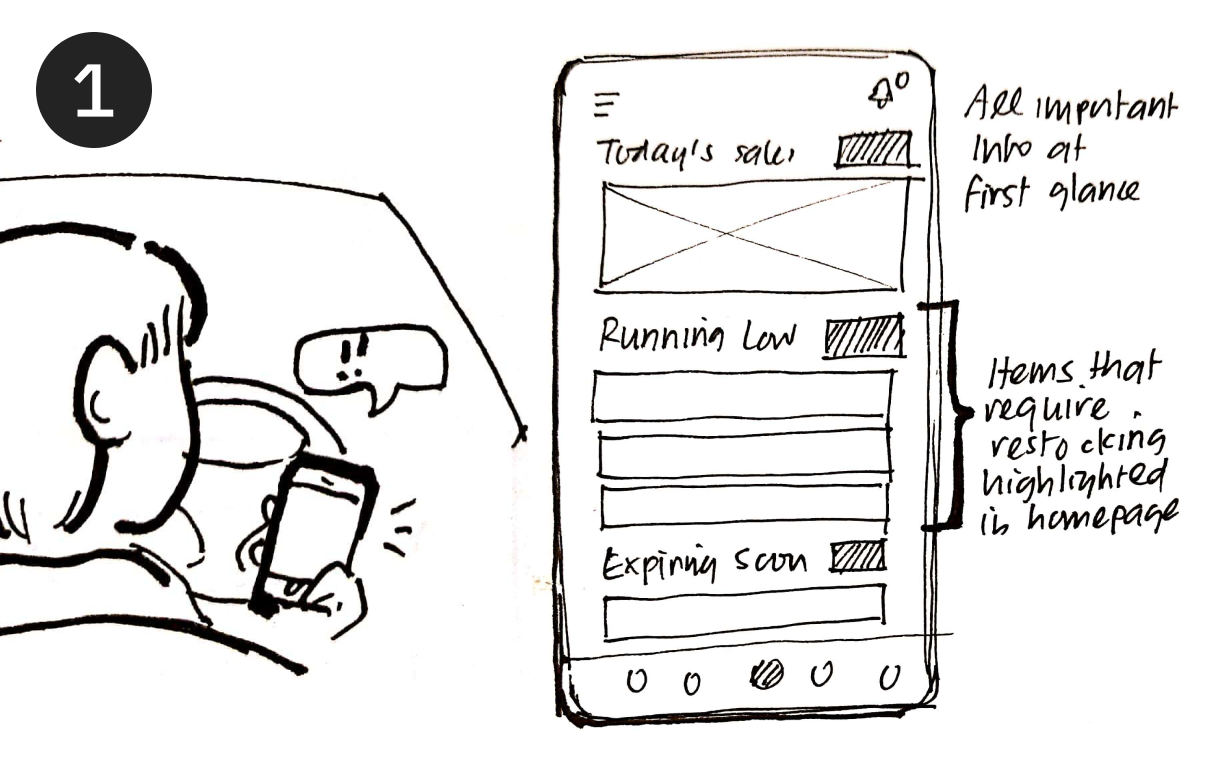 1
!!
Today's sales
Running Low
Expiring soon
All important
info at
first glance
Items that
require
restocking
highlighted
in homepage